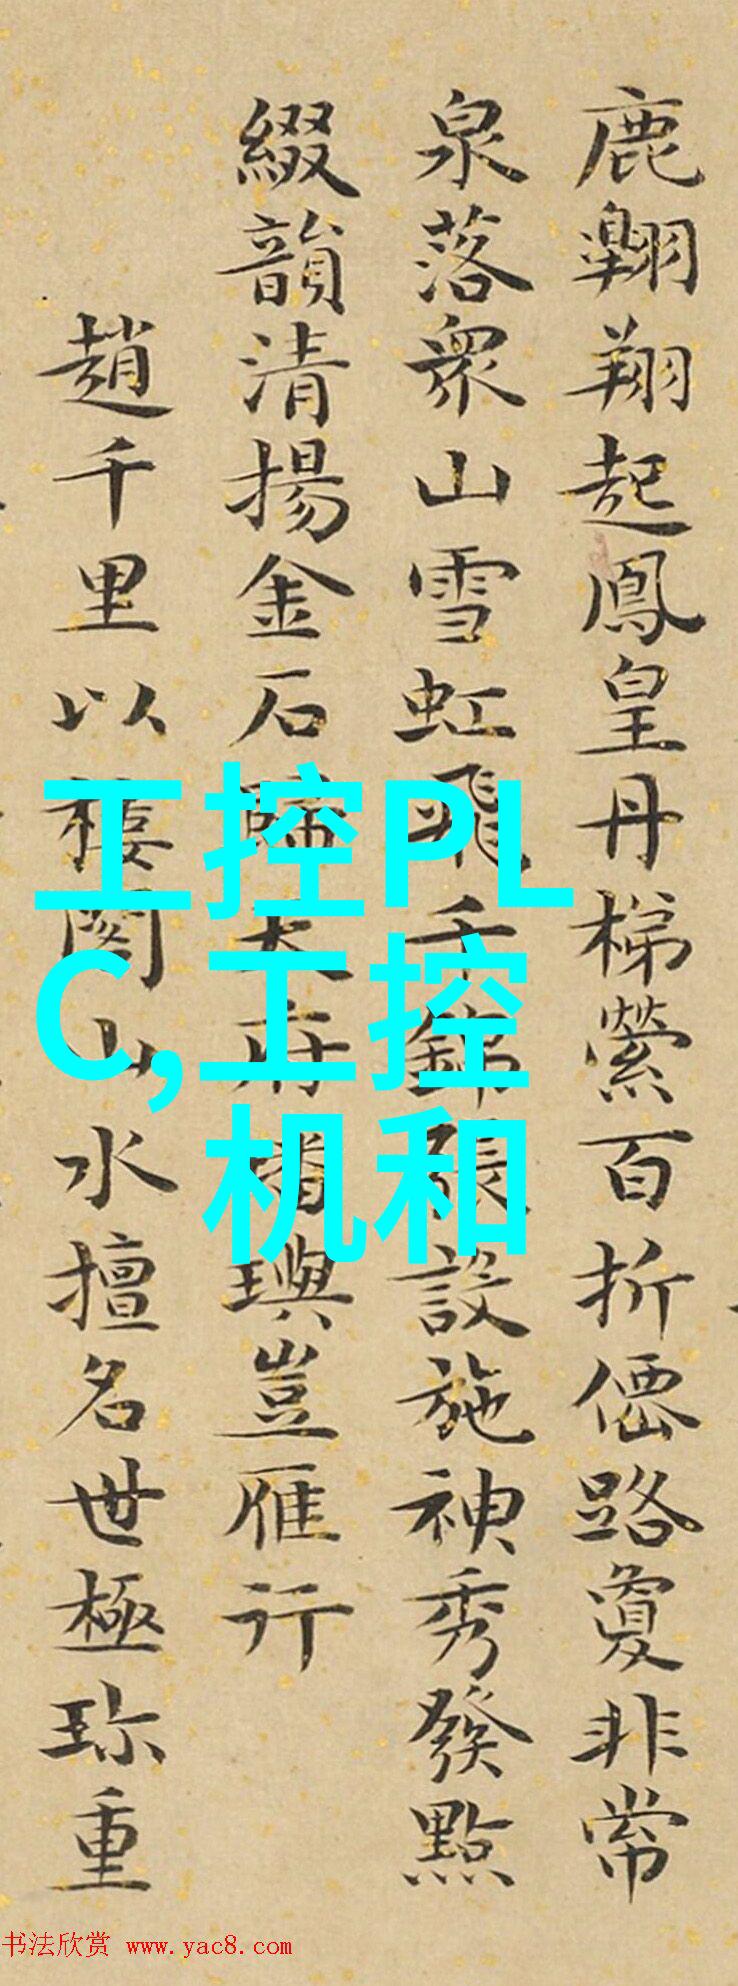 鹿翱翔起鳳皇丹梯縈百折僊路敻非常
泉落眾山雪虹飛千錦張設施神秀發點
綴韻清揚金石歸天府璠璵豈雁行
趙千里以樓閣山水擅名世極珎重
工控PL
C,工控
机和
书法欣赏 www.yac8.com